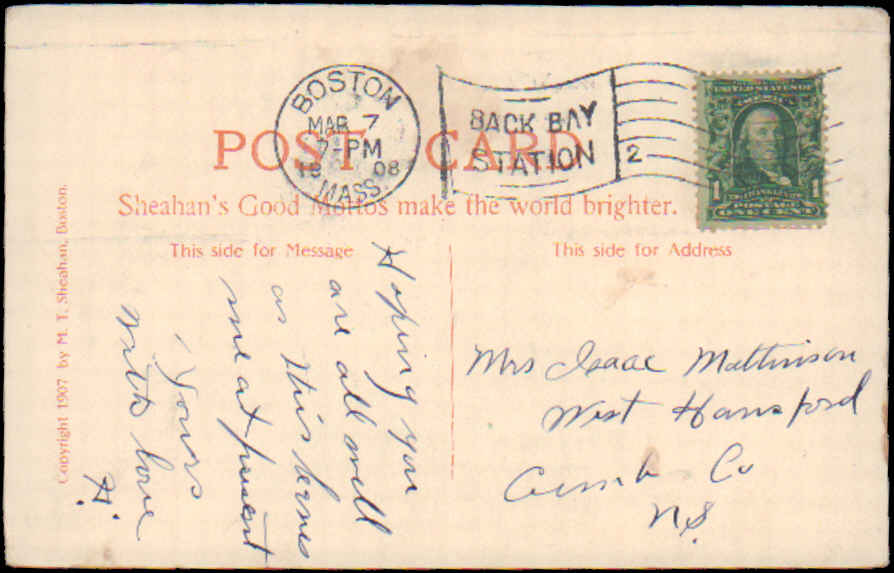 BOSTON
MAR 7
7-PM
19 08
MASS.
BACK BAY
STATION
2
UNITED STATES OF
AMERICA
1 1
FRANKLIN
POSTAGE
ONE CENT
POST CARD
Sheahan's Good Mottos make the world brighter.
This side for Message
This side for Address
Copyright 1907 by M. T. Sheahan, Boston.
Hoping you
are all well
as this leaves
me at present
Yours
with love
H.
Mrs Isaac Mattinson
West Hansford
Cumb. Co
N.S.